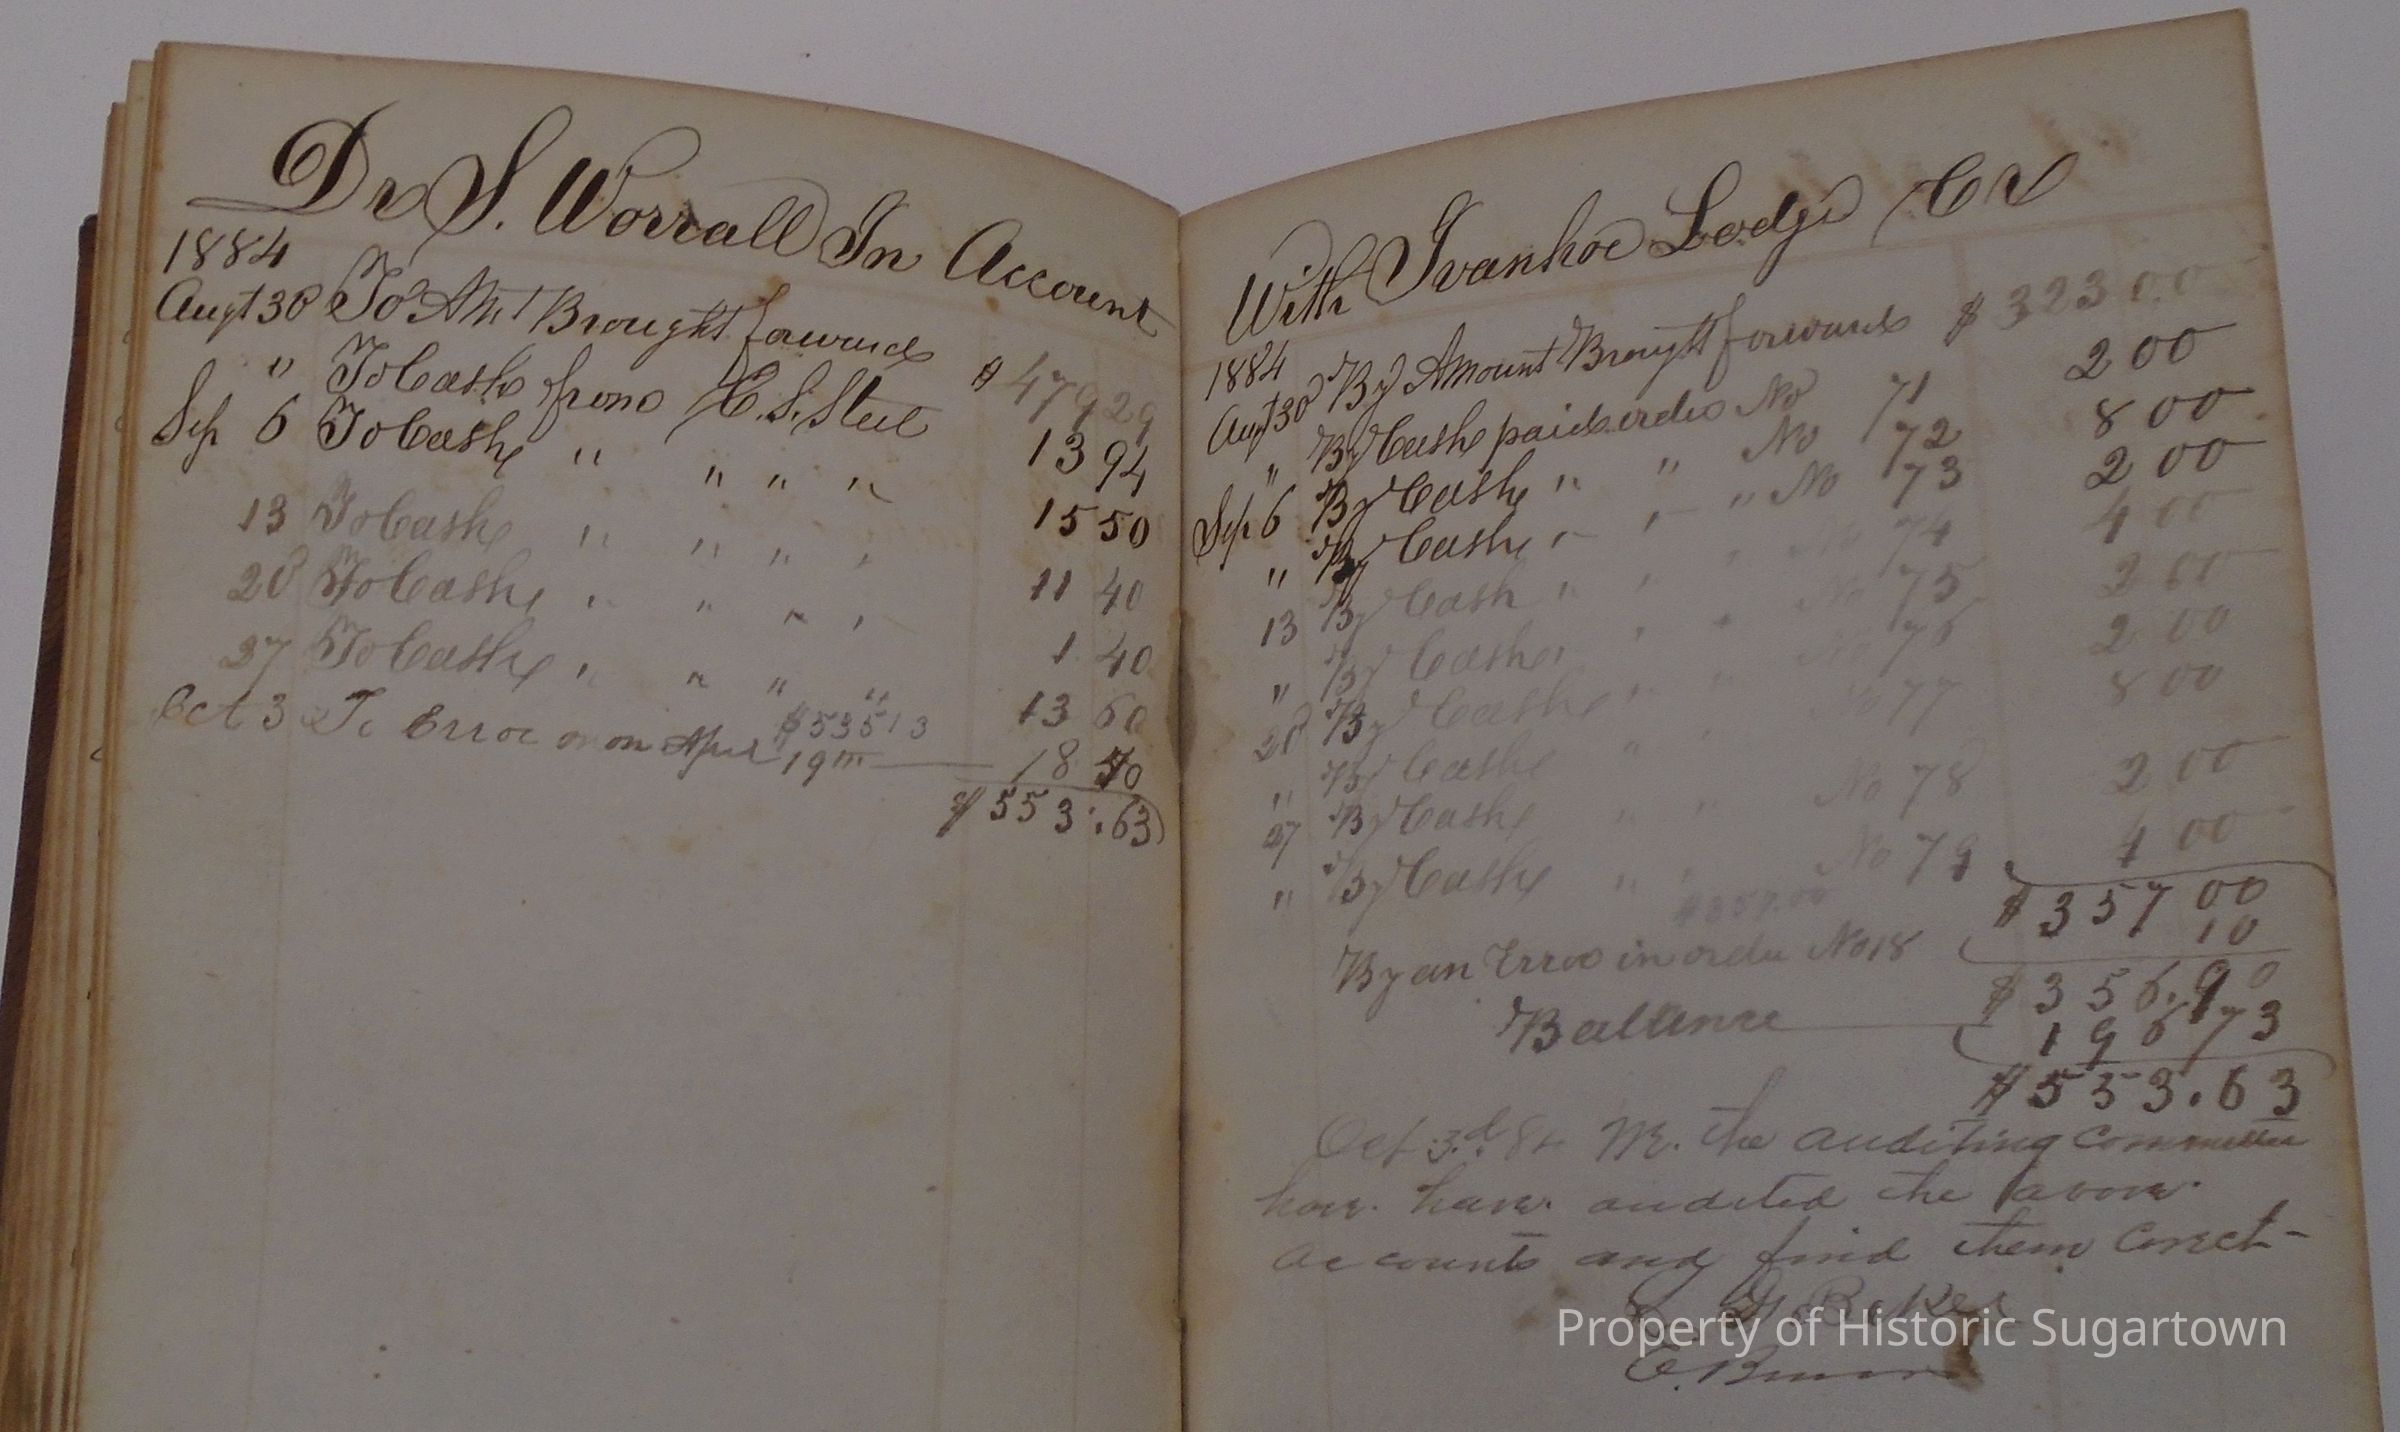 Dr S. Worrall In Account
1884
Augt 30 To Amt Brought forward $ 479 29
" To Cash from C. S. Steel 13 94
Sep 6 To Cash " " " " 15 50
13 To Cash " " " " 11 40
20 To Cash " " " " 1 40
27 To Cash " " " " 13 60
$535 13
Oct 3 To Error on on April 19th 18 50
$553.63
With Ivanhoe Lodge Cr
1884
Augt 30 By Amount Brought forward $ 323 00
" By Cash paid order No 71 2 00
Sep 6 By Cash " " No 72 8 00
" By Cash " " " No 73 2 00
13 By Cash " " " No 74 4 00
" By Cash " " No 75 2 00
20 By Cash " " No 76 2 00
" By Cash " " No 77 8 00
27 By Cash " " No 78 2 00
" By Cash " " No 79 4 00
$357.00
$ 357 00
By an Error in order No 18 10
$ 356.90
Ballance 196 73
$553.63
Oct 3.d 84 We. the auditing committee
have. have. audited the above.
accounts and find them Corect-
Baker
E.
Property of Historic Sugartown